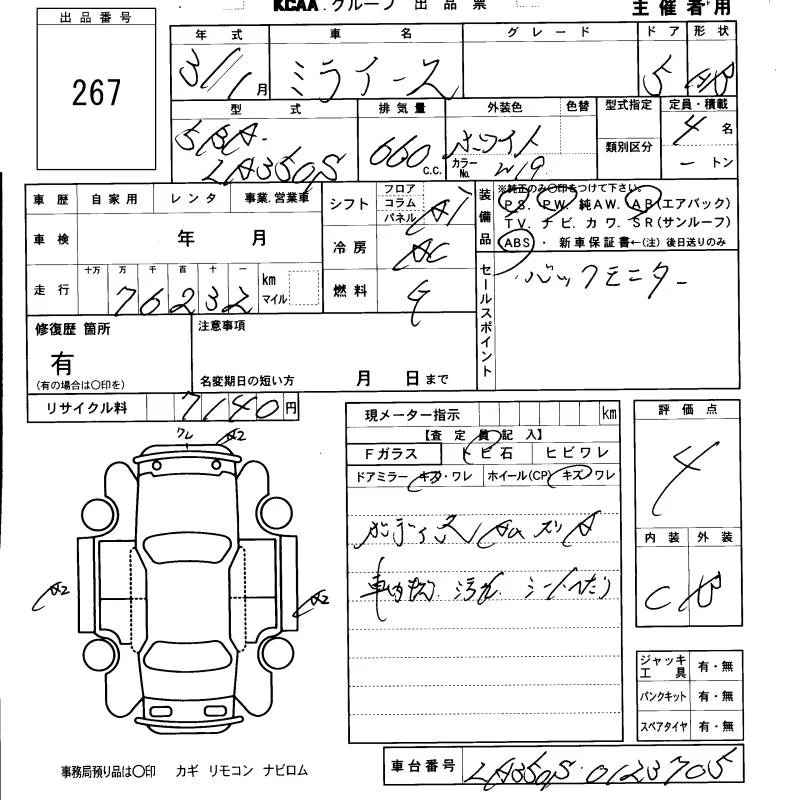 KCAA.グループ 出品票
主催者用
出品番号
267
年式 車名 グレード ドア 形状
31/1月 ミライース 5 HB
型式 排気量 外装色 色替 型式指定 定員・積載
5BA-LA350S 660c.c. ホワイト 4名
カラーNo. W19 類別区分 ー トン
車歴 自家用 レンタ 事業.営業車
シフト フロア コラム パネル AT
車検 年 月
冷房 AC
走行 十万 万 千 百 十 一 km マイル
76232
燃料 G
装備品
※純正のみ〇印をつけて下さい。
PS. PW. 純AW. AB(エアバック)
TV. ナビ. カワ. SR(サンルーフ)
ABS ・ 新車保証書←(注) 後日送りのみ
セールスポイント
バックモニター
修復歴 箇所
有
(有の場合は〇印を)
注意事項
名変期日の短い方 月 日まで
リサイクル料 7140円
現メーター指示 km
【査定員記入】
Fガラス トビ石 ヒビワレ
ドアミラー キズ・ワレ ホイール(CP) キズ ワレ
車内 汚れ シートへたり
評価点
4
内装 外装
C B
ワレ A2
A2
A2
ジャッキ工具 有・無
パンクキット 有・無
スペアタイヤ 有・無
事務局預り品は〇印 カギ リモコン ナビロム
車台番号 LA350S-0123705